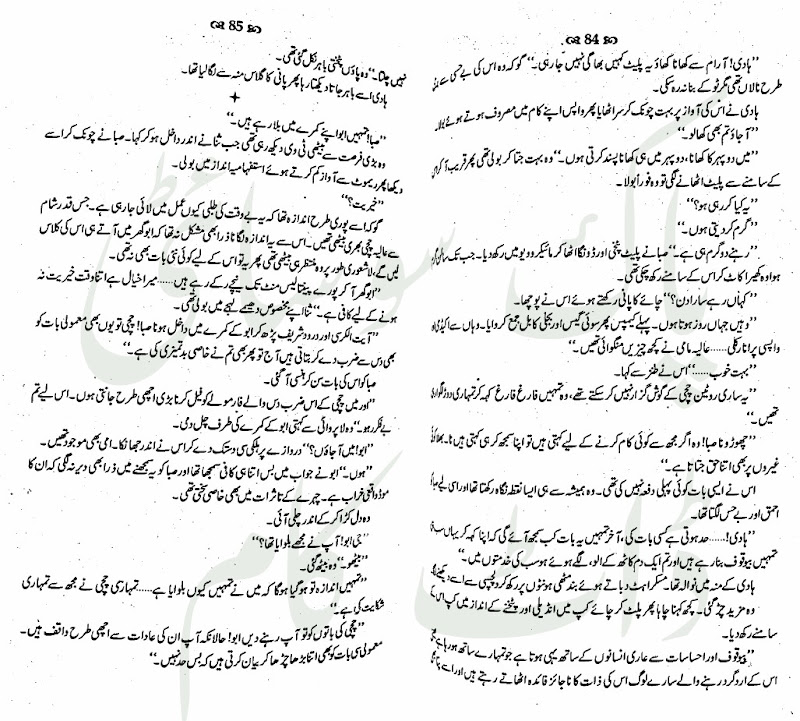 84
’’ہادی! آرام سے کھانا کھاؤ یہ پلیٹ کہیں بھاگی نہیں جا رہی۔‘‘ گو کہ وہ اس کی بے حسی سے
طرح نالاں تھی مگر ٹوکے بنا نہ رہ سکی۔
ہادی نے اس کی آواز پر بہت چونک کر سر اٹھایا پھر واپس اپنے کام میں مصروف ہوتے ہوئے بولا۔
’’آ جاؤ تم بھی کھا لو۔‘‘
’’میں دوپہر کا کھانا، دوپہر میں ہی کھانا پسند کرتی ہوں۔‘‘ وہ بہت جتا کر بولی تھی پھر قریب آ کر
کے سامنے سے پلیٹ اٹھانے لگی تو وہ فوراً بولا۔
’’یہ کیا کر رہی ہو؟‘‘
’’گرم کر دیتی ہوں۔‘‘
’’رہنے دو گرم ہی ہے۔‘‘ صبا نے پلیٹ پٹخی اور ڈونگا اٹھا کر مائیکرو ویو میں رکھ دیا۔ جب تک سالن گرم
ہوا وہ کھیرا کاٹ کر اس کے سامنے رکھ چکی تھی۔
’’کہاں رہے سارا دن؟‘‘ چائے کا پانی رکھتے ہوئے اس نے پوچھا۔
’’وہیں جہاں روز ہوتا ہوں۔ پہلے کیمپس پھر سوئی گیس اور بجلی کا بل جمع کروایا۔ وہاں سے اکیڈمی اور
واپسی پر انارکلی...... عالیہ مامی نے کچھ چیزیں منگوائی تھیں۔‘‘
’’بہت خوب......‘‘ اس نے طنز سے کہا۔
’’یہ ساری روٹین چچی کے گوش گزار نہیں کر سکتے تھے، وہ تمہیں فارغ فارغ کہہ کر تمہاری دوڑ لگوا رہی
تھیں۔‘‘
’’چھوڑو نا صبا! وہ اگر مجھ سے کوئی کام کرنے کے لیے کہتی ہیں تو اپنا سمجھ کر ہی کہتی ہیں نا۔ بھلا کوئی
غیروں پر بھی اتنا حق جتاتا ہے۔‘‘
اس نے ایسی بات کوئی پہلی دفعہ نہیں کی تھی۔ وہ ہمیشہ سے ہی ایسا نقطہ نگاہ رکھتا تھا اور اسی لیے صبا کو
احمق اور بے حس لگتا تھا۔
’’ہادی!...... حد ہوتی ہے کسی بات کی، آخر تمہیں یہ بات کب سمجھ آئے گی کہ اپنا کہہ کر یہاں سب
تمہیں بیوقوف بنا رہے ہیں اور تم ایک دم کاٹھ کے الو، لگے ہوئے ہو سب کی خدمتوں میں۔‘‘
ہادی کے منہ میں نوالہ تھا۔ مسکراہٹ دباتے ہوئے بند مٹھی ہونٹوں پر رکھ کر دلچسپی سے اسے دیکھنے لگا
وہ مزید چڑ گئی۔ کچھ کہنا چاہا پھر پلٹ کر چائے کپ میں انڈیلی اور پٹخنے کے انداز میں کپ اس کے
سامنے رکھ دیا۔
’’بیوقوف اور احساسات سے عاری انسانوں کے ساتھ یہی ہوتا ہے جو تمہارے ساتھ ہو رہا ہے
اس کے اردگرد رہنے والے سارے لوگ اس کی ذات کا ناجائز فائدہ اٹھاتے رہتے ہیں اور اسے پتا
85
نہیں چلتا۔‘‘ وہ پاؤں پٹختی باہر نکل گئی تھی۔
ہادی اسے باہر جاتا دیکھتا رہا پھر پانی کا گلاس منہ سے لگا لیا تھا۔
’’صبا! تمہیں ابو اپنے کمرے میں بلا رہے ہیں۔‘‘
وہ بڑی فرصت سے بیٹھی ٹی وی دیکھ رہی تھی جب ثنا نے اندر داخل ہو کر کہا۔ صبا نے چونک کر اسے
دیکھا پھر ریموٹ سے آواز کم کرتے ہوئے استفہامیہ انداز میں بولی۔
’’خیریت؟‘‘
گو کہ اسے پوری طرح اندازہ تھا کہ یہ بے وقت کی طلبی کیوں عمل میں لائی جا رہی ہے۔ جس قدر شام
سے عالیہ چچی بھری بیٹھی تھیں۔ اس سے یہ اندازہ لگانا ذرا بھی مشکل نہ تھا کہ ابو گھر میں آتے ہی اس کی کلاس
لیں گے، لاشعوری طور پر وہ منتظر ہی بیٹھی تھی پھر یہ تو اس کے لیے کوئی نئی بات بھی نہ تھی۔
’’ابو گھر آ کر پورے پینتالیس منٹ تک نیچے رکے رہے ہیں...... میرا خیال ہے اتنا وقت خیریت نہ
ہونے کے لیے کافی ہے۔‘‘ ثنا اپنے مخصوص دھیمے لہجے میں بولی تھی۔
’’آیت الکرسی اور درود شریف پڑھ کر ابو کے کمرے میں داخل ہونا صبا! چچی تو یوں بھی معمولی بات کو
بھی دس سے ضرب دے کر بتاتی ہیں آج تو پھر بھی تم نے خاصی بدتمیزی کی ہے۔‘‘
صبا کو اس کی بات سن کر ہنسی آ گئی۔
’’اور میں چچی کے اس ضرب دس والے فارمولے کو فیل کرنا بڑی اچھی طرح جانتی ہوں۔ اس لیے تم
بے فکر رہو۔‘‘ وہ لاپروائی سے کہتی ابو کے کمرے کی طرف چل دی۔
’’ابو! میں آ جاؤں؟‘‘ دروازے پر ہلکی سی دستک دے کر اس نے اندر جھانکا۔ امی بھی موجود تھیں۔
’’ہوں۔‘‘ ابو نے جواب میں بس اتنا ہی کافی سمجھا تھا اور صبا کو یہ سمجھنے میں ذرا بھی دیر نہ لگی کہ ان کا
موڈ واقعی خراب ہے۔ چہرے کے تاثرات میں بھی خاصی سختی تھی۔
وہ دل کڑا کر کے اندر چلی آئی۔
’’جی ابو! آپ نے مجھے بلوایا تھا؟‘‘
’’بیٹھو۔‘‘ وہ بیٹھ گئی۔
’’تمہیں اندازہ تو ہو گیا ہوگا کہ میں نے تمہیں کیوں بلوایا ہے...... تمہاری چچی نے مجھ سے تمہاری
شکایت کی ہے۔‘‘
’’چچی کی باتوں کو تو آپ رہنے دیں ابو! حالانکہ آپ ان کی عادات سے اچھی طرح واقف ہیں۔
معمولی سی بات کو بھی اتنا بڑھا چڑھا کر بیان کرتی ہیں کہ بس حد نہیں۔‘‘